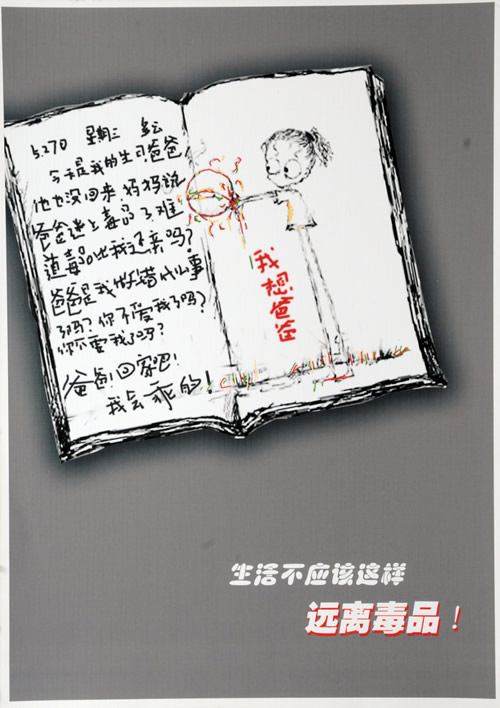 5.27日 星期三 多云
今天是我的生日爸爸
他也没回来 妈妈说
爸爸迷上毒品了难
道毒品比我还亲吗?
爸爸是我做错什么事
了吗?你不爱我了吗?
你不要我了吗?
爸爸!回家吧!
我会乖的!
我想爸爸
生活不应该这样
远离毒品!